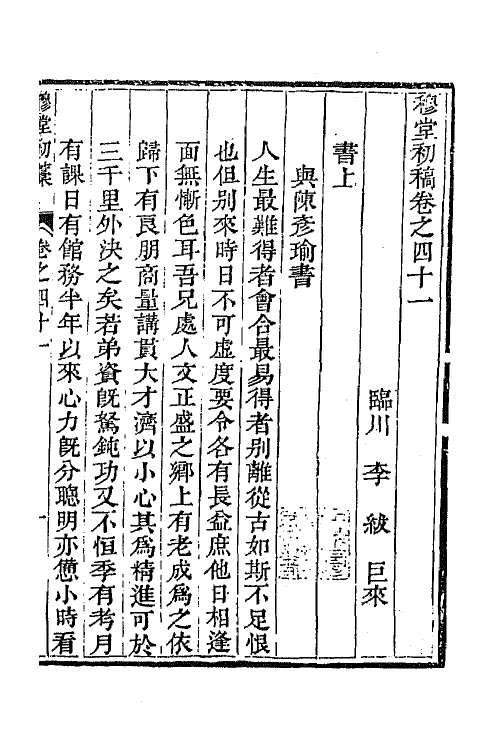 穆堂初稿卷之四十一
臨川 李 紱 巨來
書上
與陳彥瑜書
人生最難得者會合最易得者別離從古如斯不足恨
也但別來時日不可虛度要令各有長益庶他日相逢
面無慚色耳吾兄處人文正盛之鄉上有老成爲之依
歸下有良朋商量講貫大才濟以小心其爲精進可於
三千里外決之矣若弟資旣駑鈍功又不恒季有考月
有課日有館務半年以來心力旣分聰明亦憊小時看
穆堂初藁 卷之四十一 一